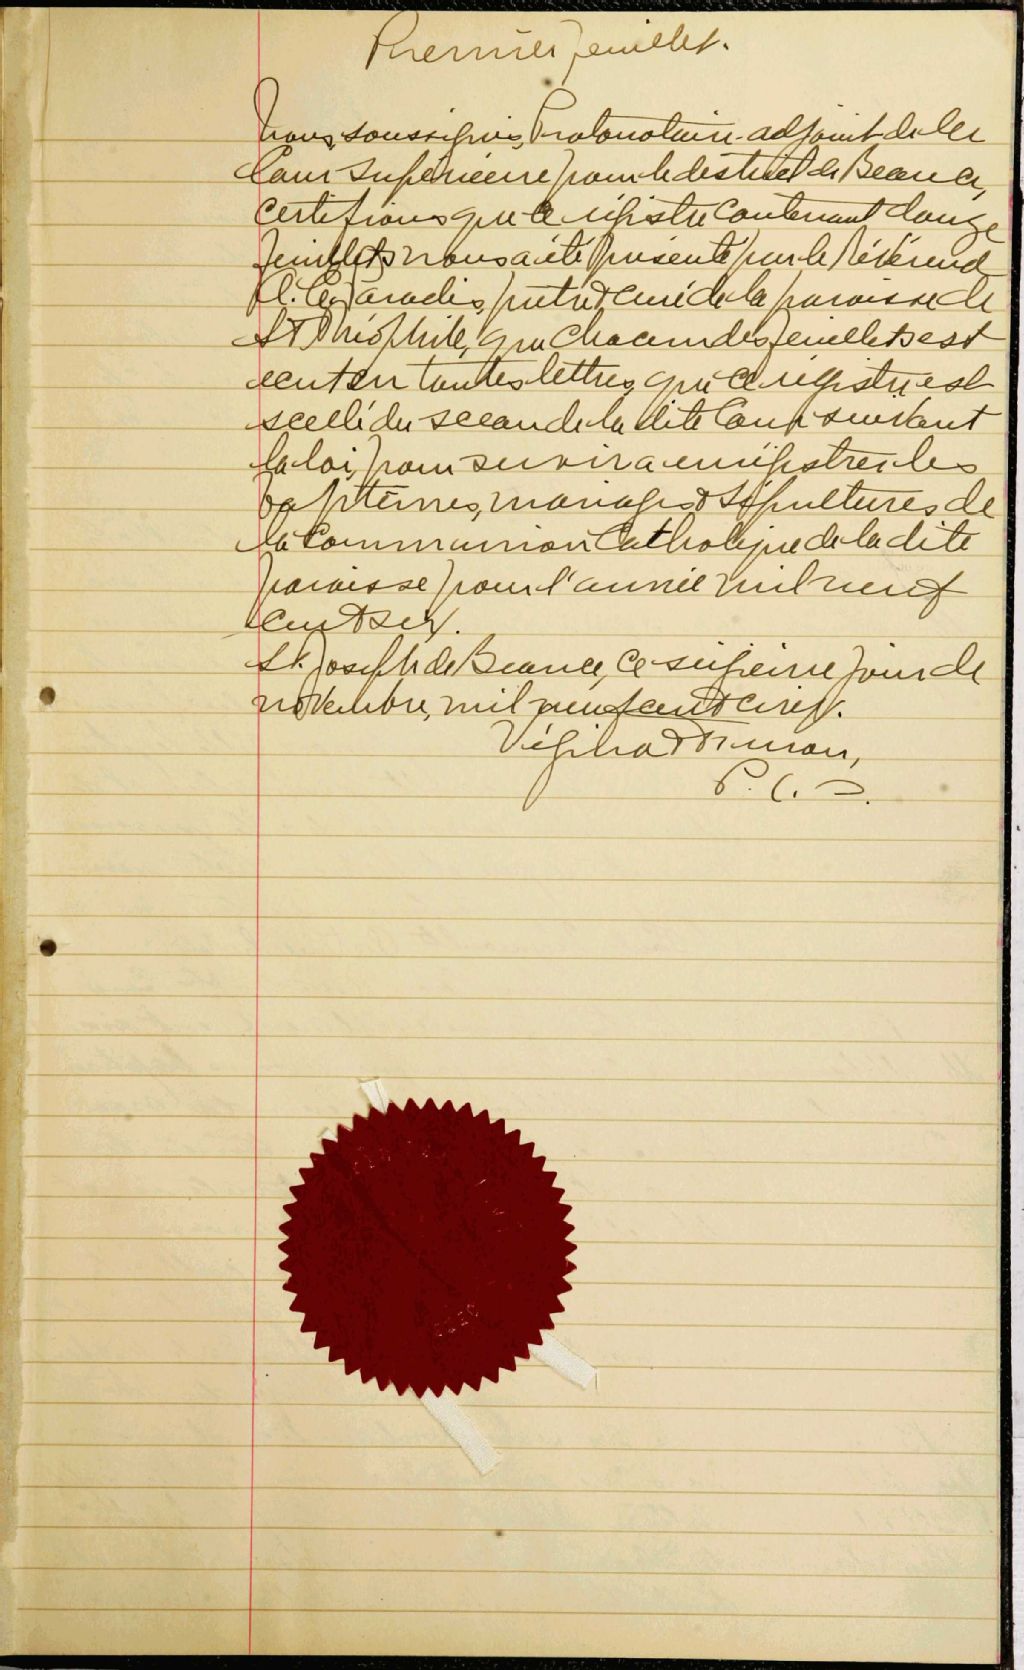 Premier feuillet.
Nous, soussigné, Protonotaire-adjoint de la
Cour Supérieure pour le district de Beauce,
certifions que ce régistre contenant douze
feuillets nous a été présenté par le Révérend
Paradis, prêtre & curé de la paroisse de
St Théophile, que chacun des feuillets est
écrit en toutes lettres, que ce régistre est
scellé du sceau de la dite Cour suivant
la loi, pour servir a enrégistrer les
baptêmes, mariages & sépultures de
la Communion Catholique de la dite
paroisse pour l'année mil neuf
cent six.
St. Joseph de Beauce, ce seizième jour de
novembre, mil neuf cent cinq.
Vézina &
P. C. S.